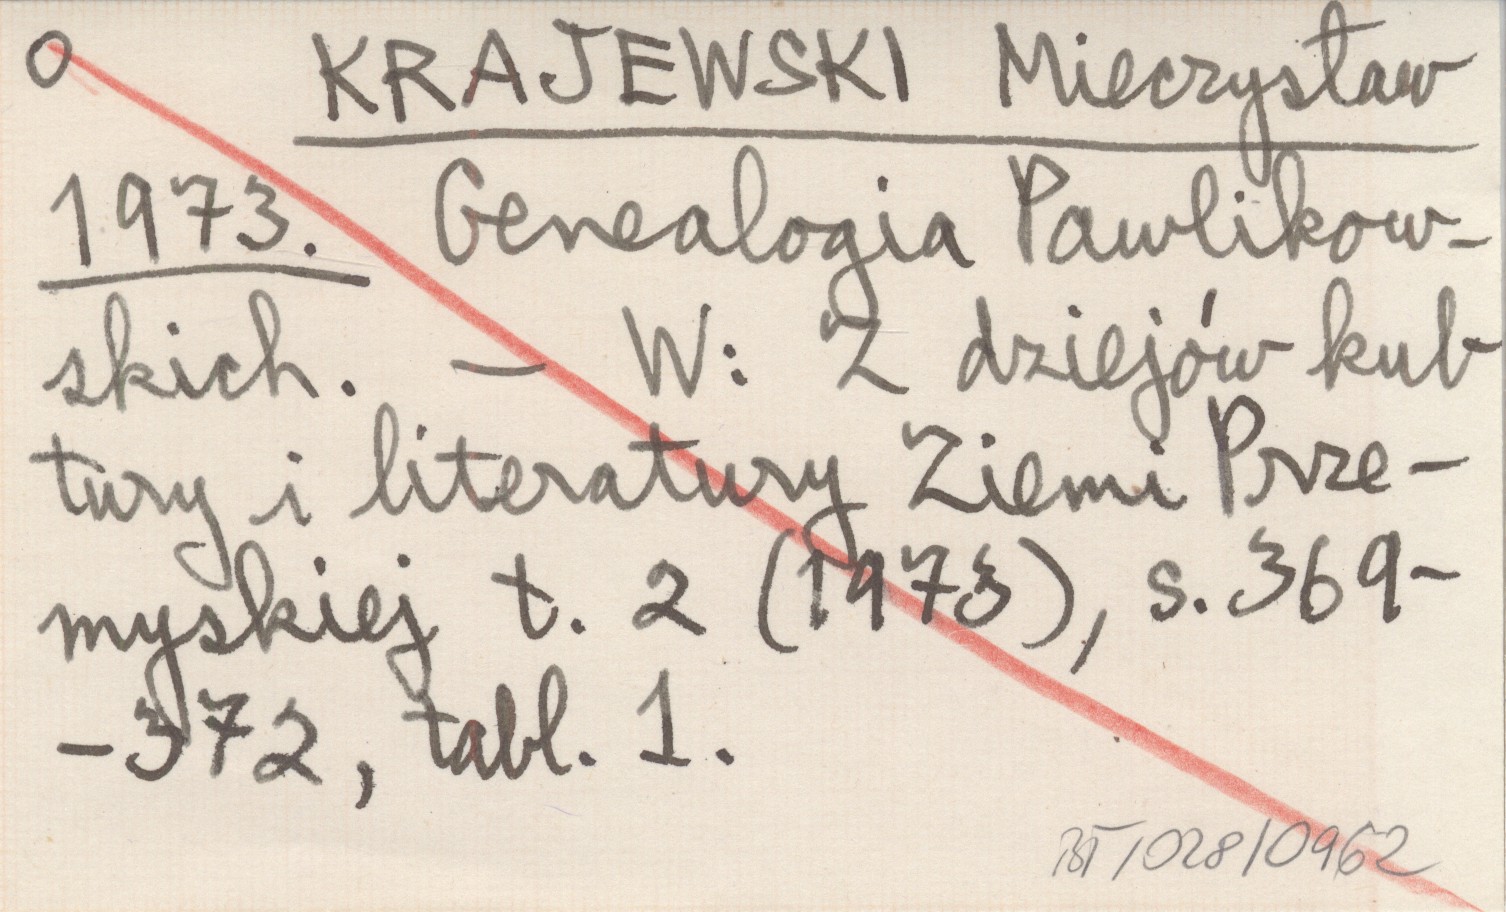 O KRAJEWSKI Mieczysław
1973. Genealogia Pawlikow-
skich. – W: Z dziejów kul-
tury i literatury Ziemi Prze-
myskiej t. 2 (1973), s. 369-
-372, tabl. 1.
BT/028/0962